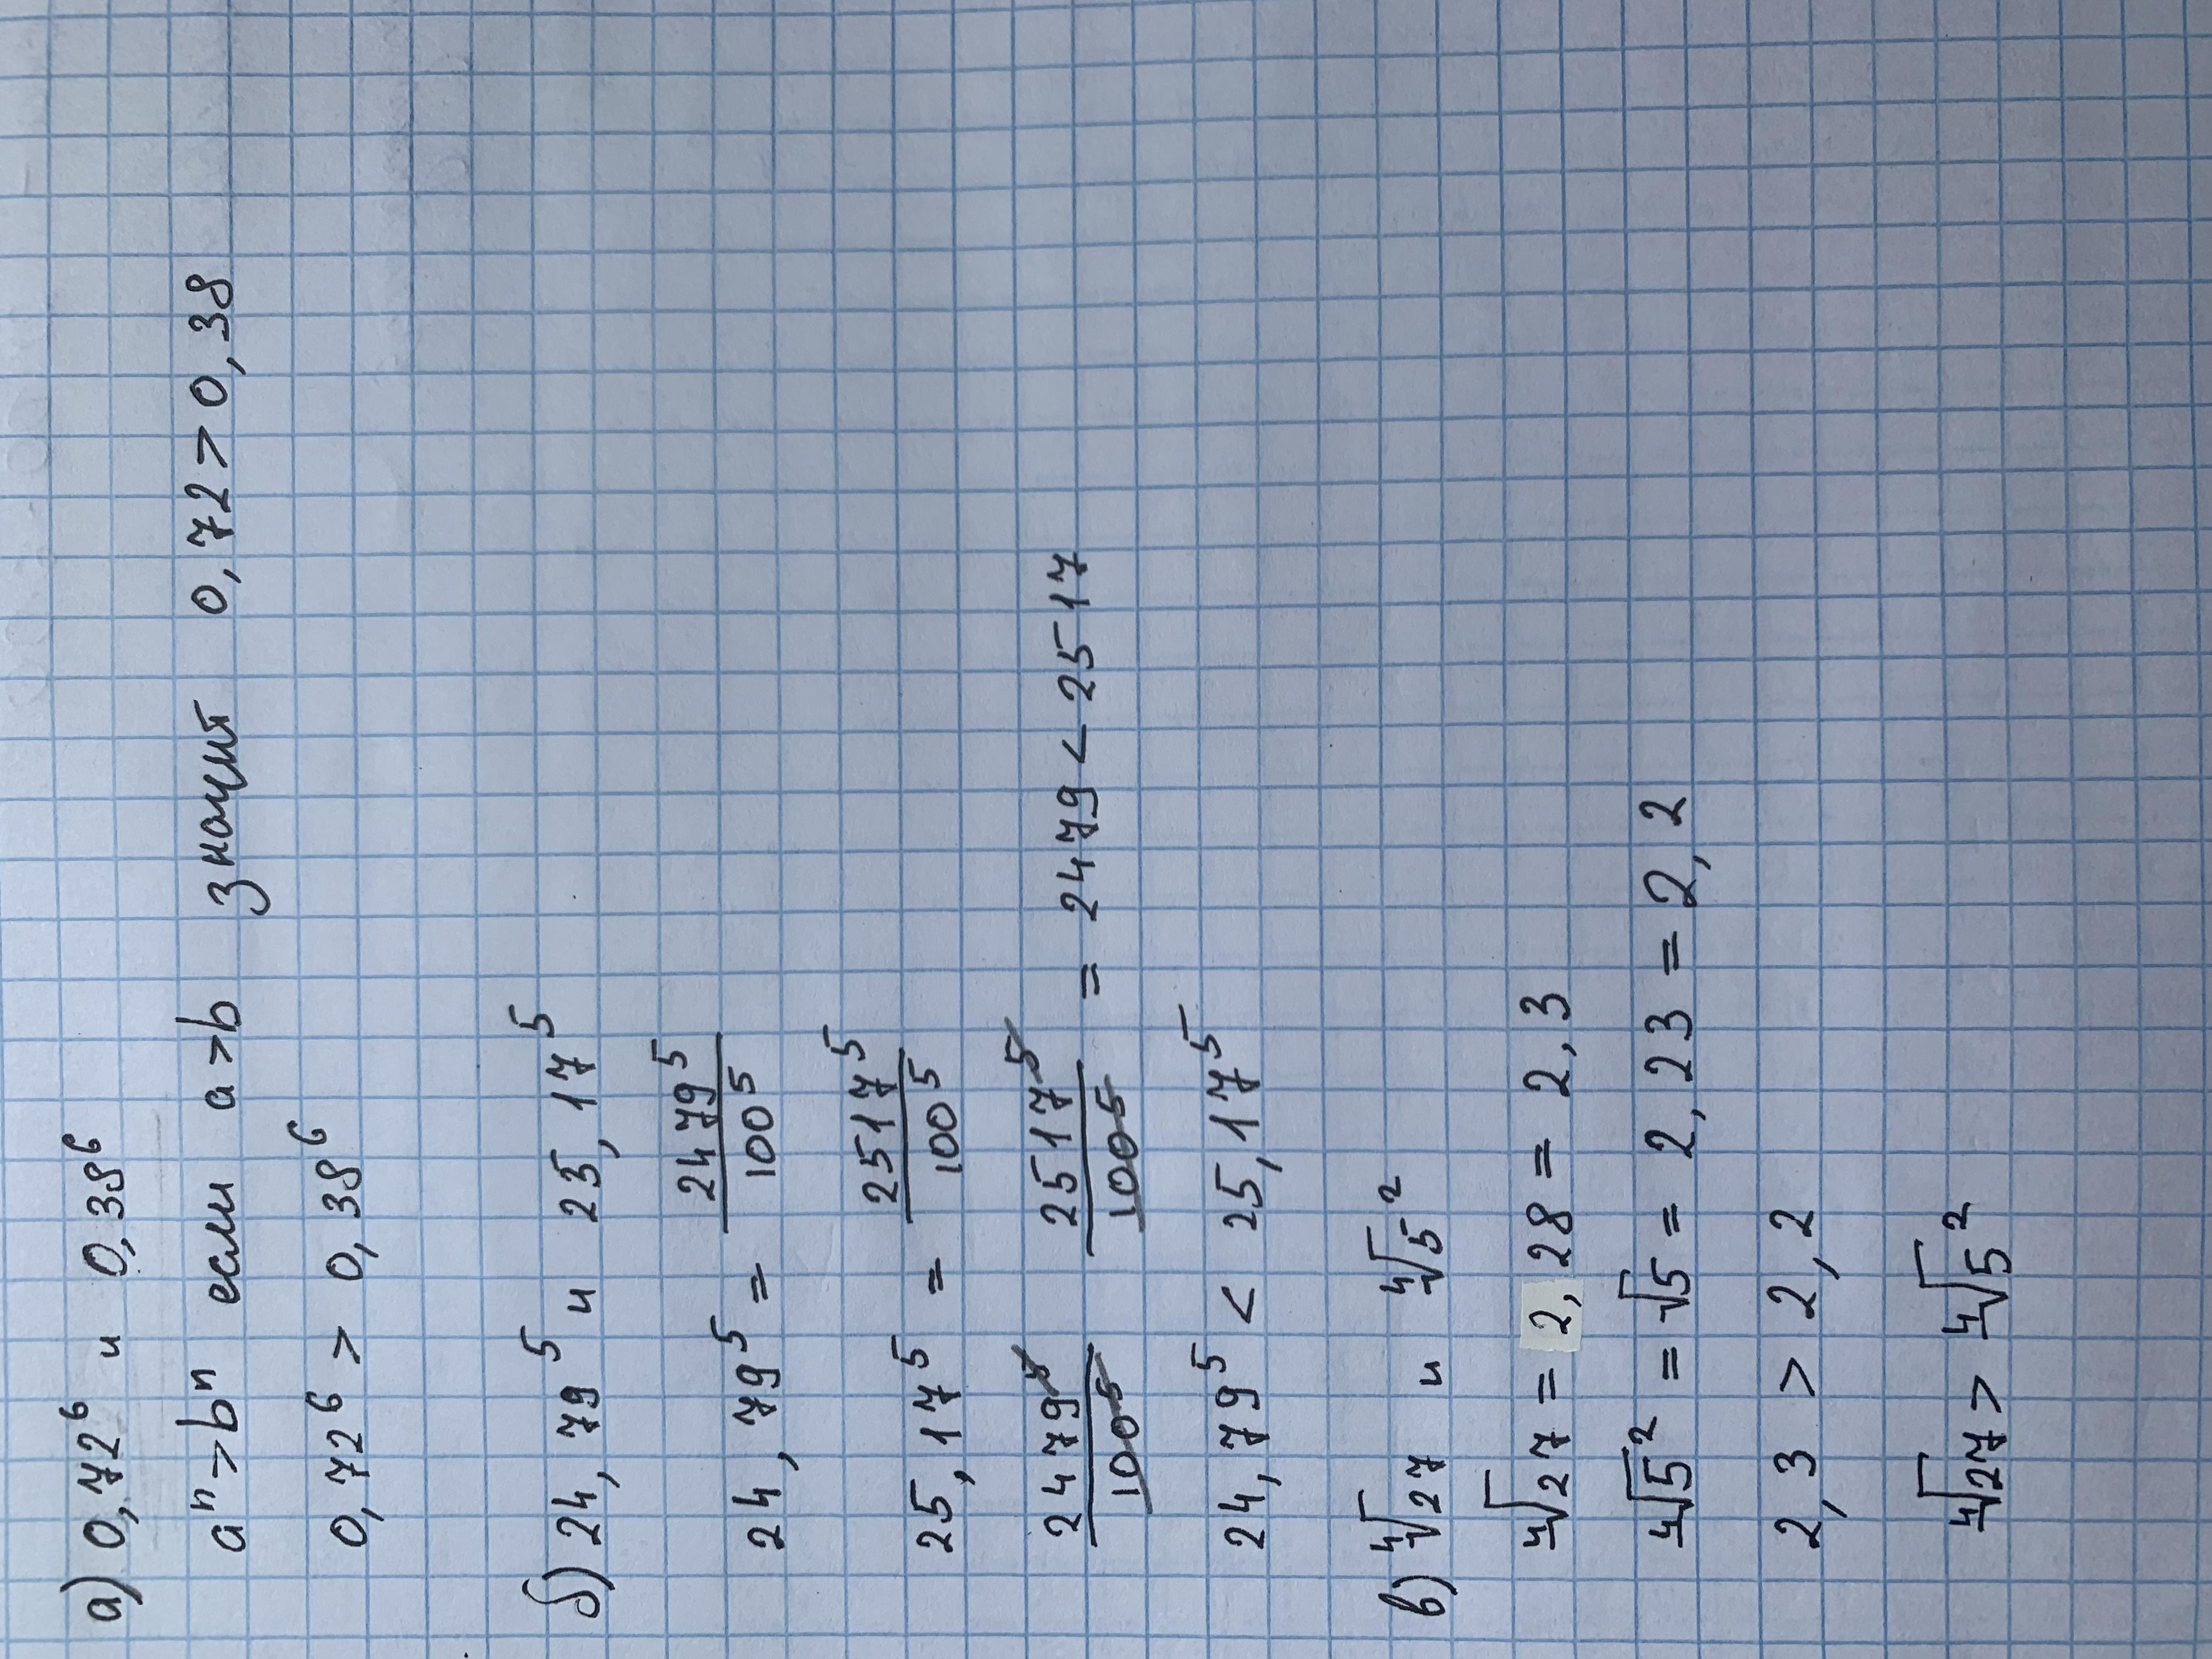 а) 0,72⁶ и 0,38⁶
aⁿ>bⁿ если a>b значит 0,72>0,38
0,72⁶ > 0,38⁶
б) 24,79⁵ и 25,17⁵
24,79⁵ = 2479⁵/100⁵
25,17⁵ = 2517⁵/100⁵
2479⁵/100⁵ 2517⁵/100⁵ = 2479 < 2517
24,79⁵ < 25,17⁵
в) ⁴√27 и ⁴√5²
⁴√27 = 2,28 = 2,3
⁴√5² = √5 = 2,23 = 2,2
2,3 > 2,2
⁴√27 > ⁴√5²